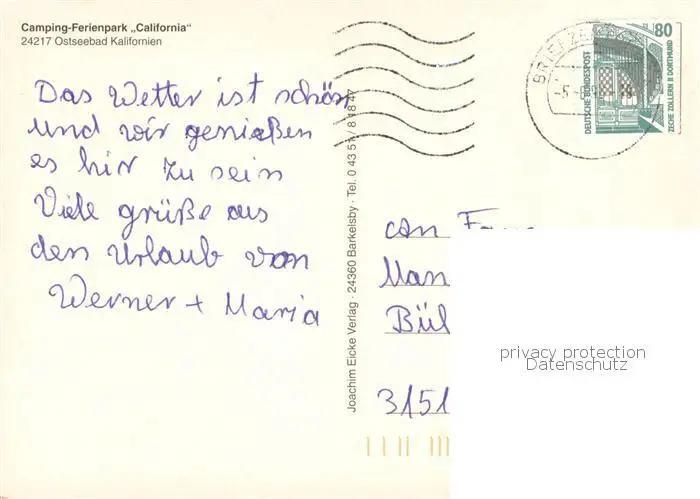 Camping-Ferienpark „California“
24217 Ostseebad Kalifornien
Das Wetter ist schön
und wir genießen
es hir zu sein
Viele grüße aus
den Urlaub von
Werner + Maria
Joachim Eicke Verlag · 24360 Barkelsby · Tel. 0 43 51 / 8 18 47
BRIEFZE
80
DEUTSCHE BUNDESPOST
ZECHE ZOLLERN II DORTMUND
an
Man
Bül
3151
privacy protection
Datenschutz